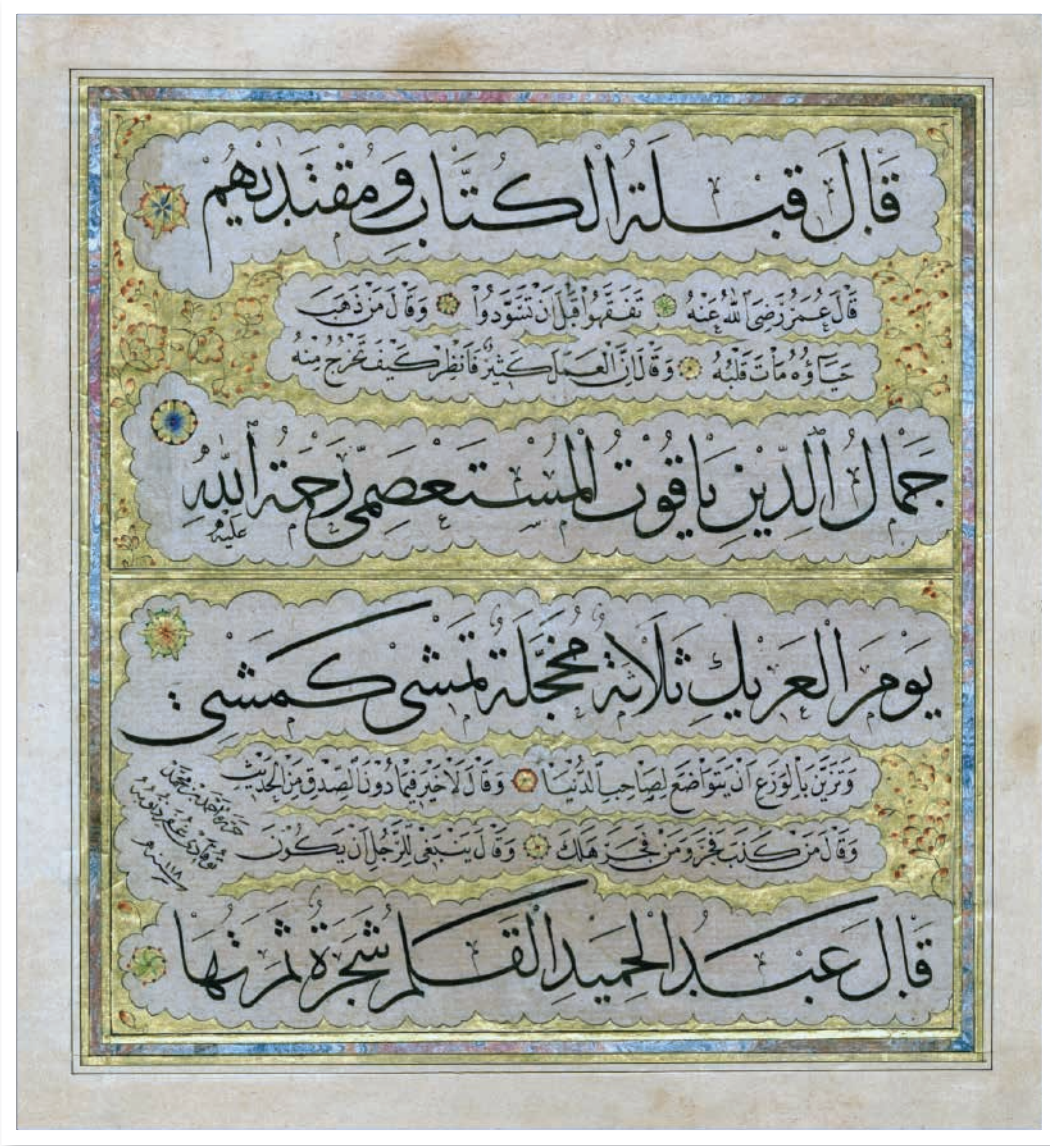 قَالَ قِبْلَةُ الْكُتَّابِ وَمُقْتَدِيهِمْ
قَالَ عُمَرُ رَضِىَ اللهُ عَنْهُ تَفَقَّهُوا قَبْلَ اَنْ تُسَوَّدُوا وَقَالَ مَنْ ذَهَبَ
حَيَاؤُهُ مَاتَ قَلْبُهُ وَقَالَ اِنَّ الْعَمَلَ كَثِيرٌ فَانْظُرْ كَيْفَ تَخْرُجُ مِنْهُ
جَمَالُ الدِّينِ يَاقُوتُ الْمُسْتَعْصِمِى رَحْمَةُ اللهِ عَلَيْهِ
يَوْمَ الْعَرِيكِ ثَلَاثَةٌ مُحَجَّلَةٌ تَمْشِى كَمَشْىِ
وَتَزَيَّنَ بِالْوَرَعِ اَنْ يَتَوَاضَعَ لِصَاحِبِ الدُّنْيَا وَقَالَ لَا خَيْرَ فِيمَا دُونَ الصِّدْقِ مِنَ الْحَدِيثِ
وَقَالَ مَنْ كَذَبَ فَجَرَ وَمَنْ فَجَرَ هَلَكَ وَقَالَ يَنْبَغِى لِلرَّجُلِ اَنْ يَكُونَ
محمد
غفر ذنوبه
سنه ١١١٨
قَالَ عَبْدُ الْحَمِيدِ الْقَلَمُ شَجَرَةٌ ثَمَرَتُهَا